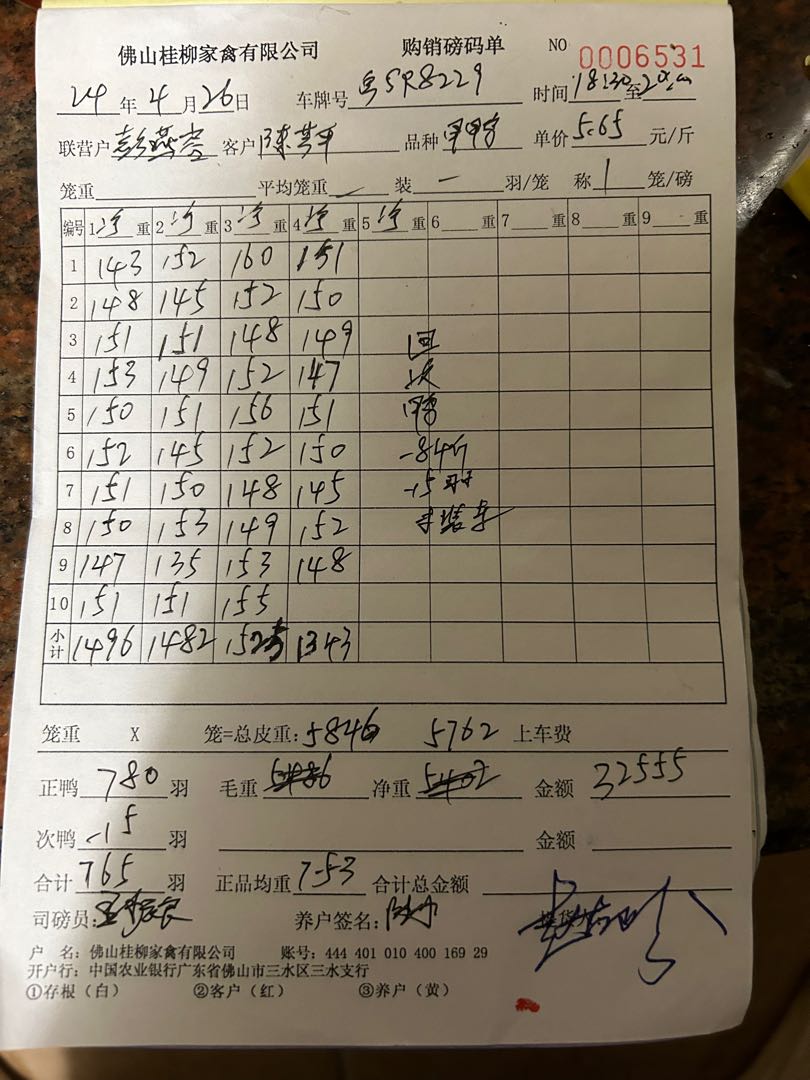 佛山桂柳家禽有限公司 购销磅码单 NO 0006531
24年4月26日 车牌号 粤SR8229 时间 18:30至
联营户 客户 品种 单价 5.65 元/斤
笼重 平均笼重 — 装 — 羽/笼 称 1 笼/磅
编号 1净重 2净重 3净重 4净重 5净重 6重 7重 8重 9重
1 143 152 160 151
2 148 145 152 150
3 151 151 148 149 回
4 153 149 152 147 次
5 150 151 156 151 鸭
6 152 145 152 150 -84斤
7 151 150 148 145 -15羽
8 150 153 149 152 未装车
9 147 135 153 148
10 151 151 155
小计 1496 1482 1525 1343
笼重 X 笼=总皮重: 5846 5762 上车费
正鸭 780 羽 毛重 净重 金额 32555
次鸭 -15 羽 金额
合计 765 羽 正品均重 7.53 合计总金额
司磅员: 养户签名:
户 名: 佛山桂柳家禽有限公司 账号: 444 401 010 400 169 29
开户行: 中国农业银行广东省佛山市三水区三水支行
①存根（白） ②客户（红） ③养户（黄）